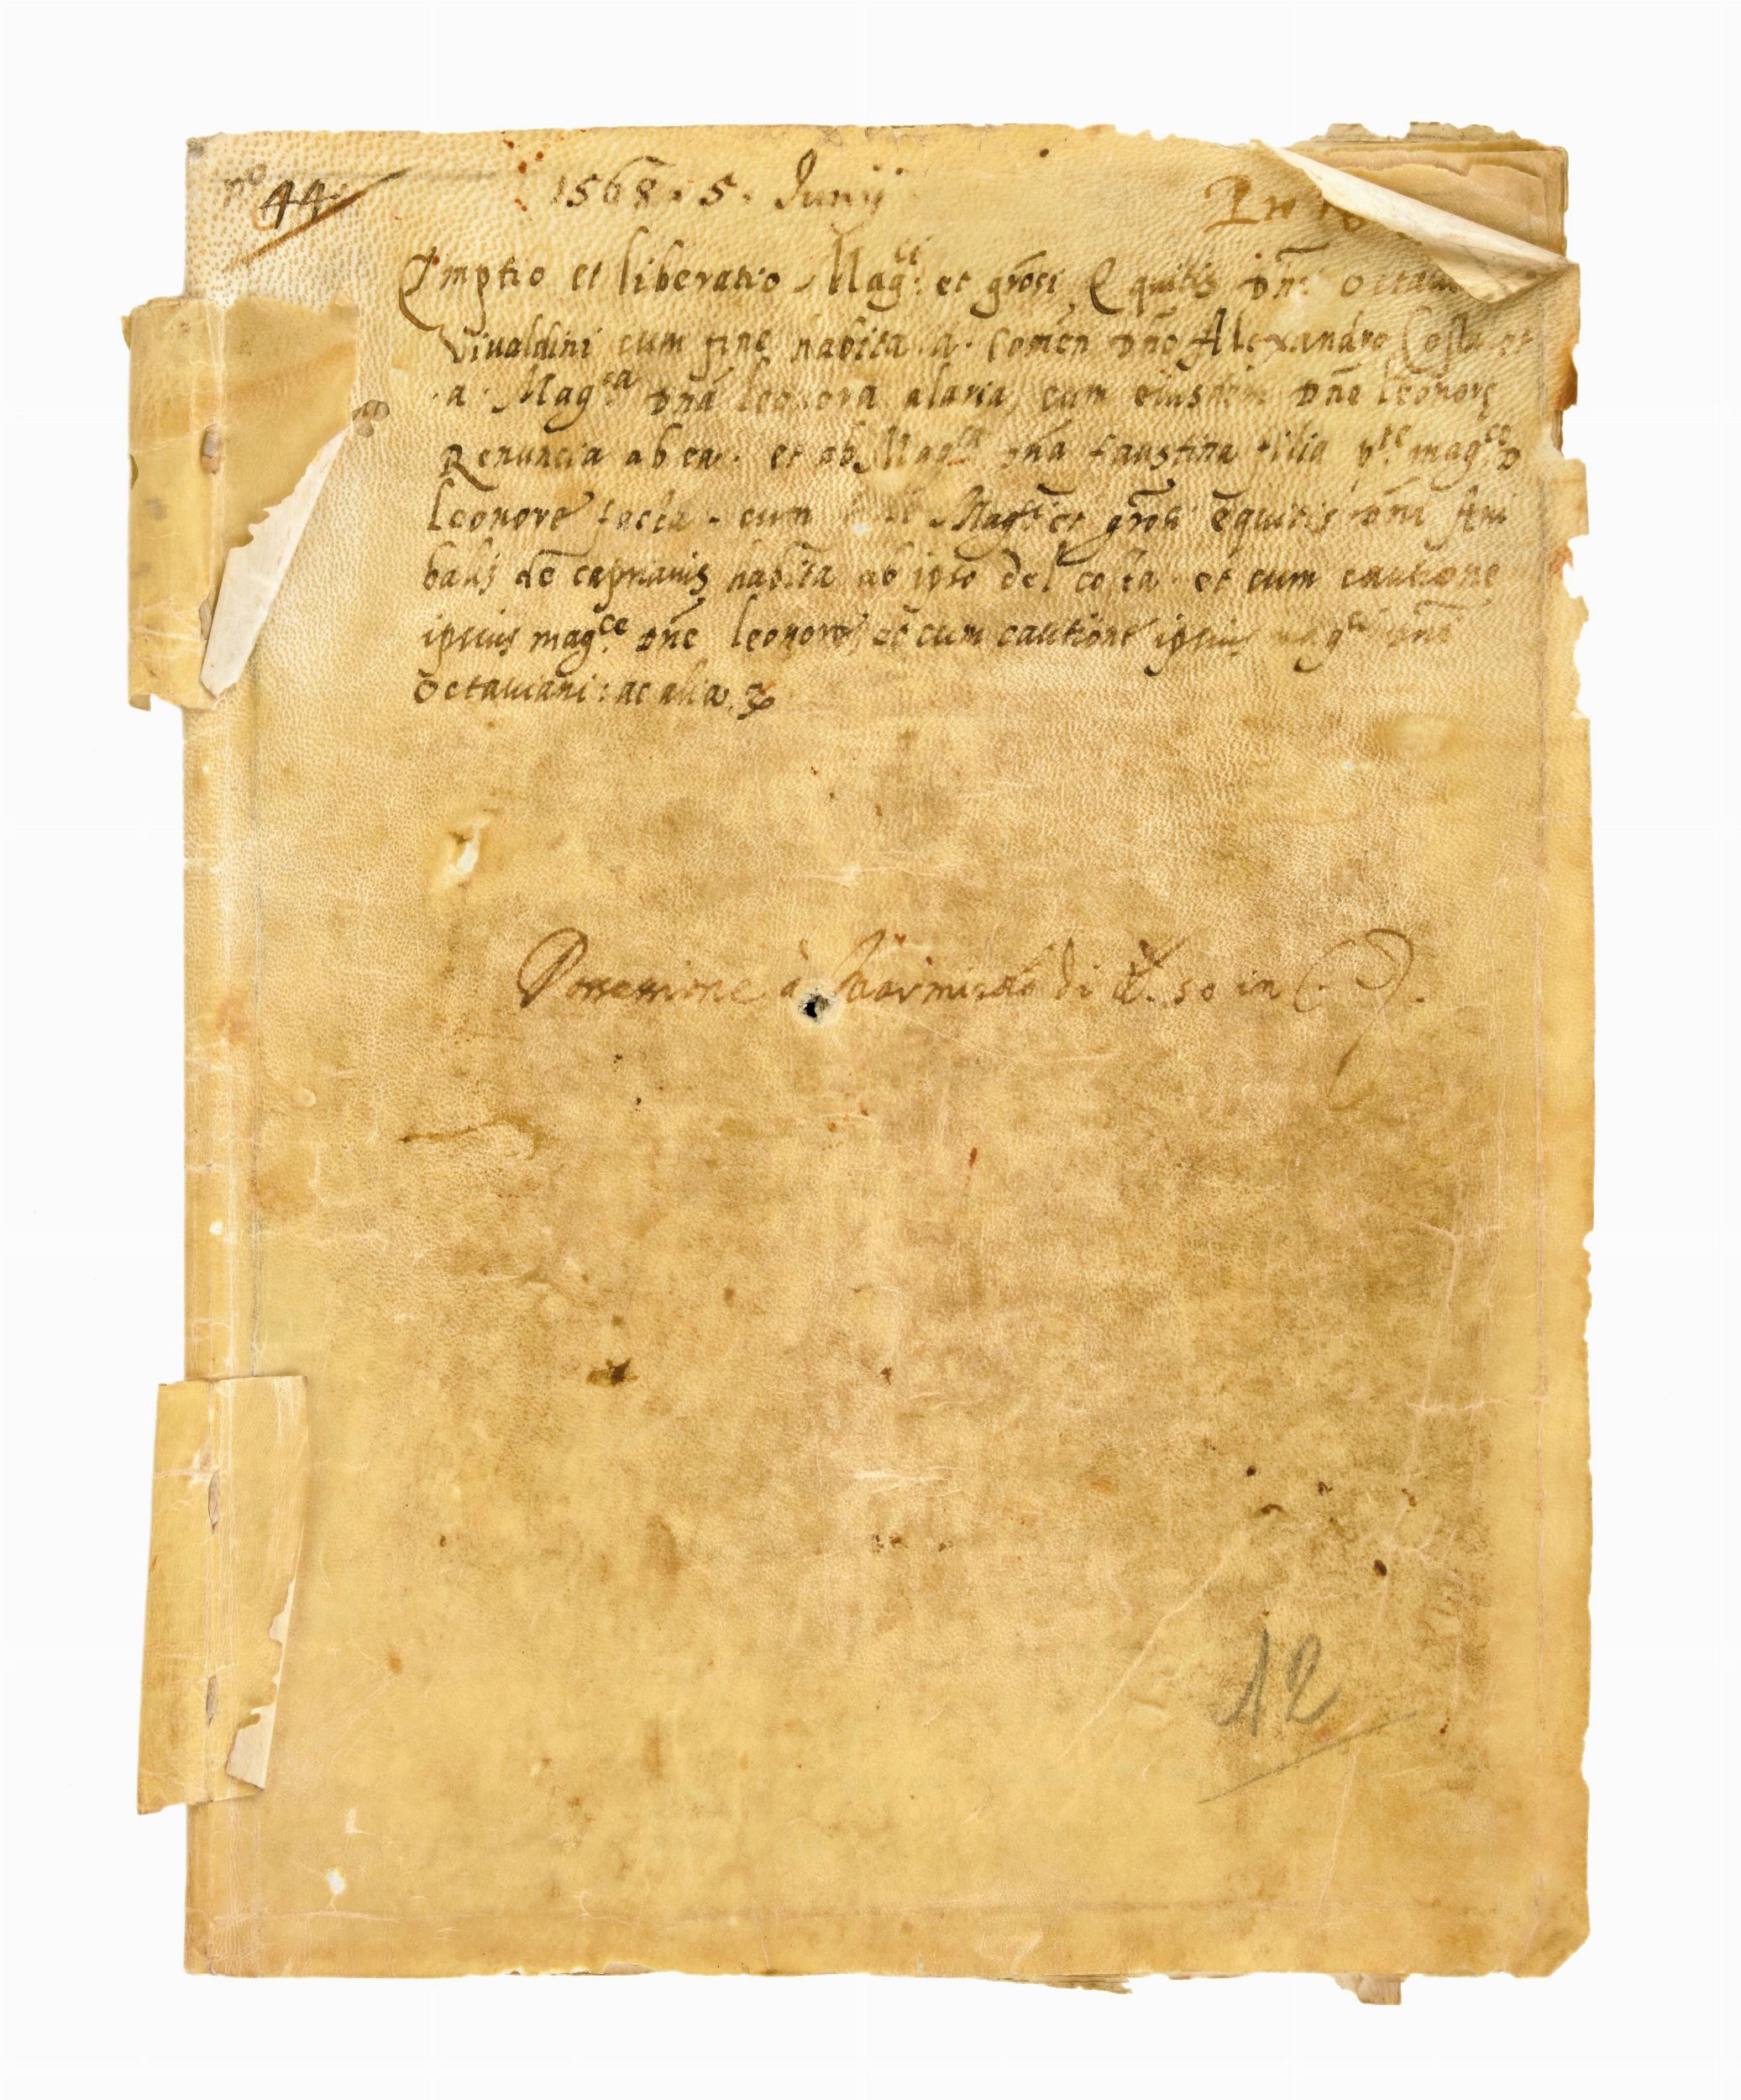 nº 44
1568. 5. Junij
Emptio et liberatio Mag.ci et grosi Equitis dni Octavi
Vivaldini cum fine habita a Comen dno Alexandro Costa et
a Mag.ca dna leonora alaria, cum eiusdem dne leonore
Renuncia ab ea. et ab Mag.ca dna faustina filia p.te mag.ce D
Leonore facta. cum Mag.ci et grosi equitis dni Ani
balis de caprianis habita ab ipso del costa. et cum cautione
ipsius mag.ce dne leonore, et cum cautione ipsius mag.ci dni
Octaviani: ac alia.
Possessione à di 50 in
12